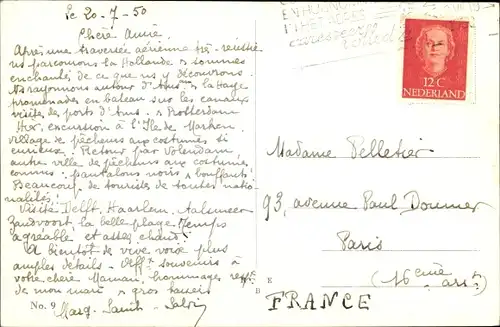 Le 20-7-50
Chère Amie.
Après une traversée aérienne très réussie
ns parcourons la Hollande & sommes
enchantés de ce que ns y découvrons
Ns rayonnons autour d'Ams. & la Haye
promenades en bateau sur les canaux
visite des ports d'Ams. & Rotterdam
Hier, excursion à l'Ile de Marken
village de pêcheurs aux costumes si
curieux. Retour par Volendam
autre ville de pêcheurs aux costumes
connus: pantalons noirs & bouffants!
Beaucoup de touristes de toutes natio-
nalités!
Visité Delft, Haarlem, Aalsmeer
Zandvoort, la belle plage. Temps
agréable et assez chaud.
A bientôt de vive voix plus
amples détails. Affx souvenirs à
votre chère Maman, hommages respx
de mon mari & gros baisers
No. 9
Marg.
12 C
NEDERLAND
Madame Pelletier
93, avenue Paul Doumer
Paris
(16ème arrt)
FRANCE
E
B